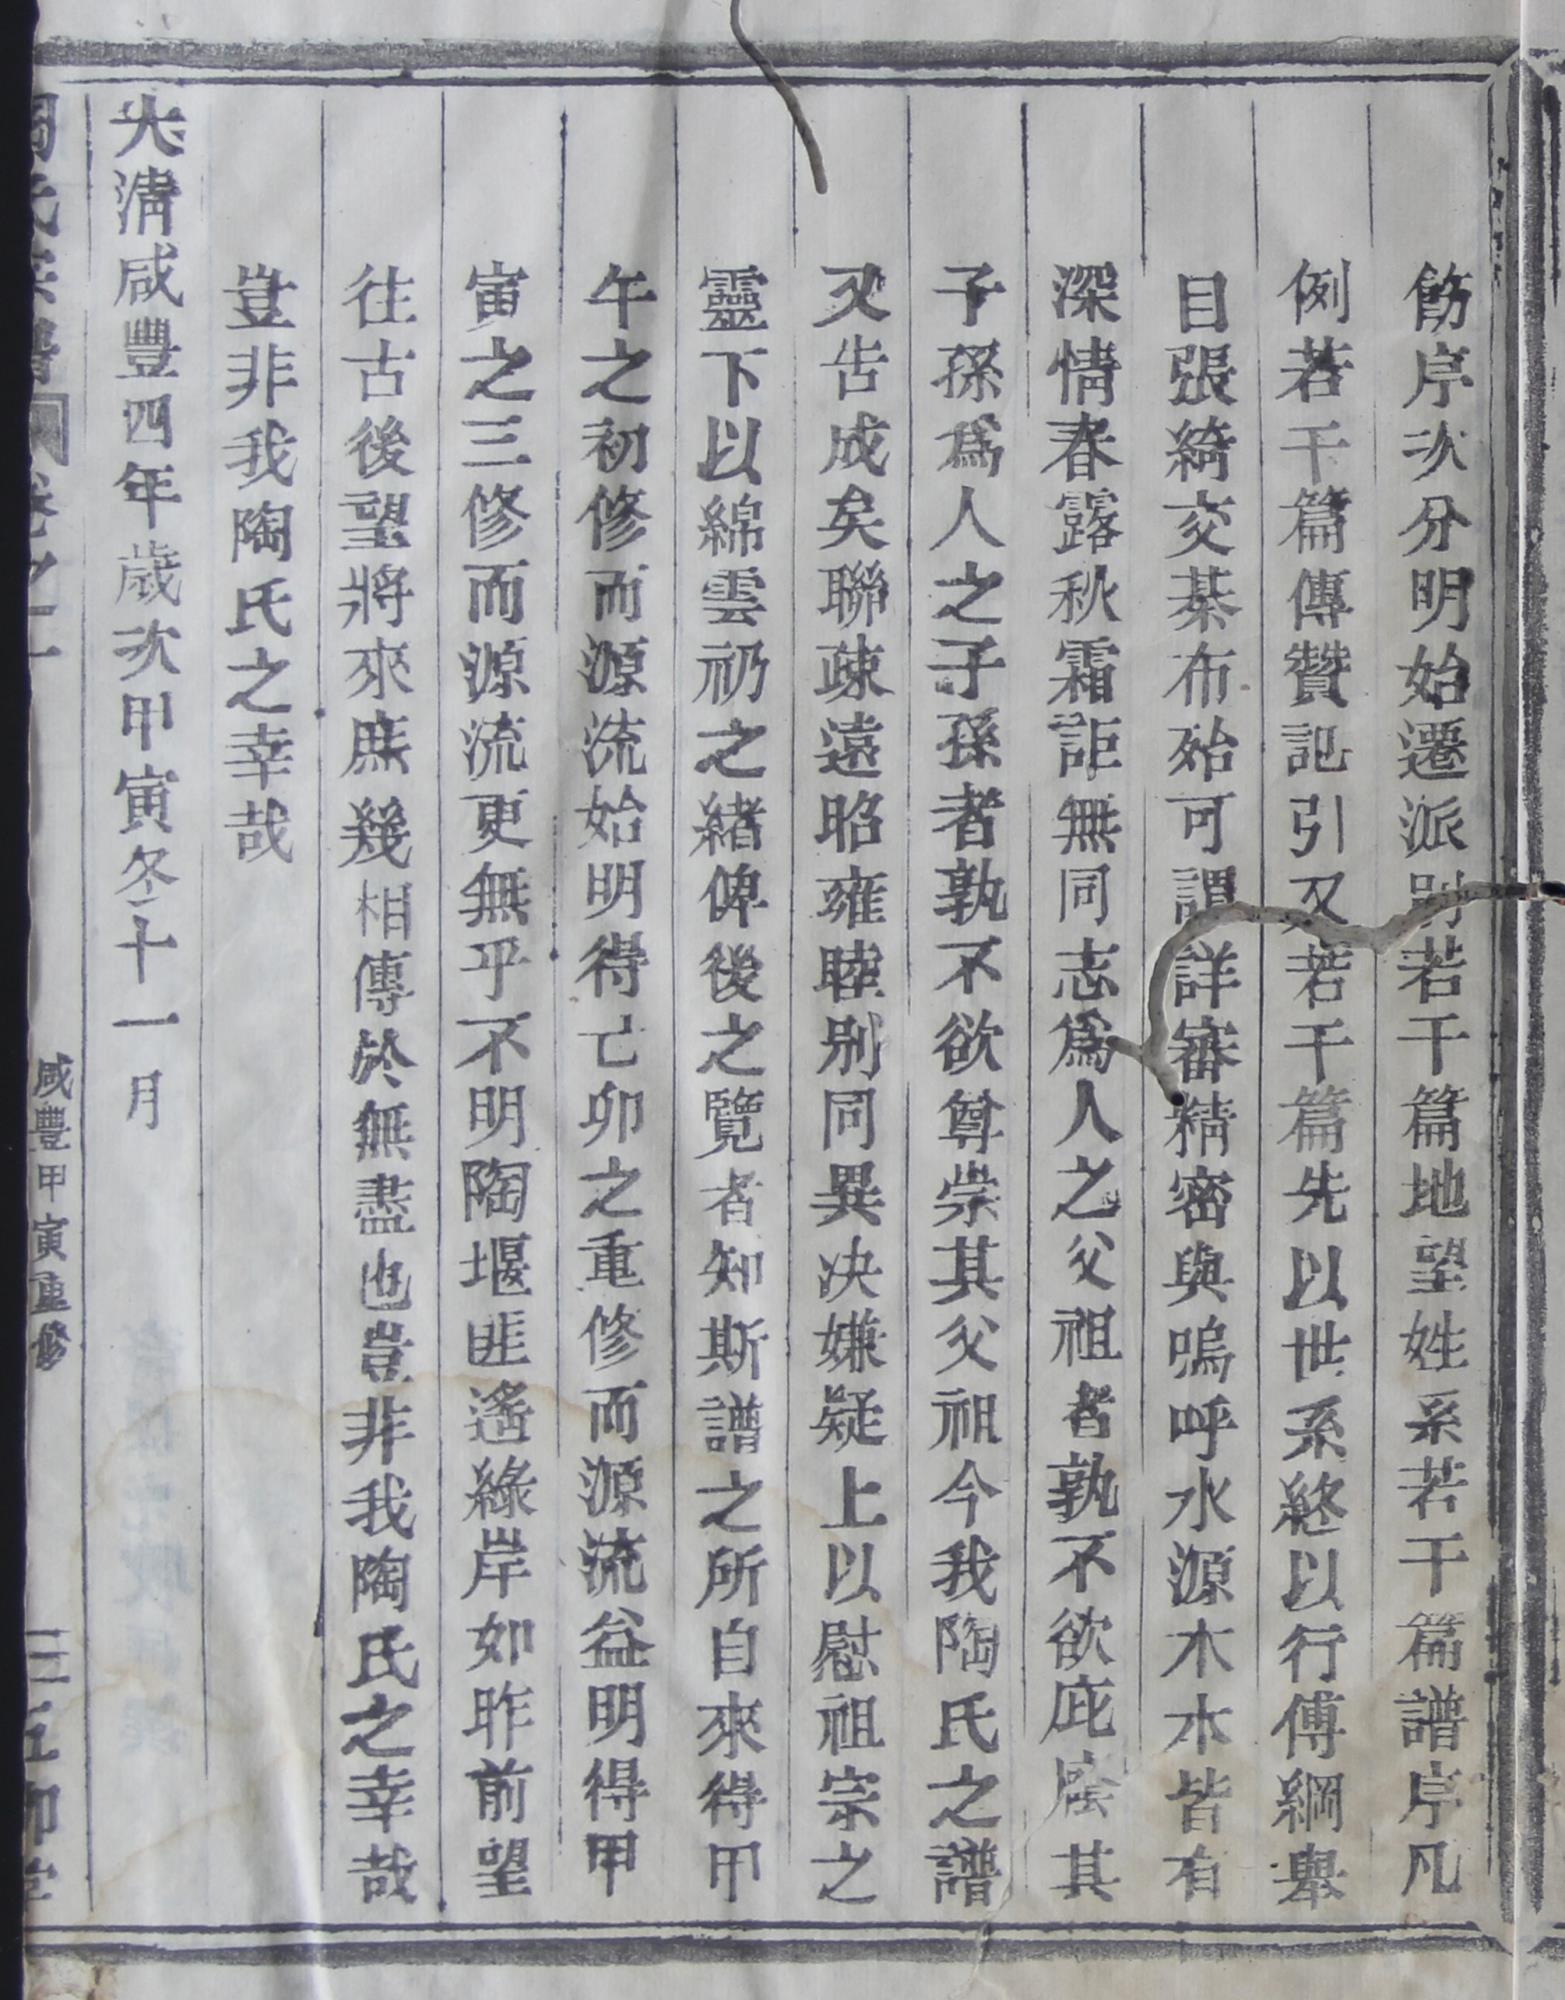 飭序次分明始遷派別若干篇地望姓系若干篇譜序凡
例若干篇傳贊記引又若干篇先以世系終以行傅綱舉
目張綺交棊布殆可謂詳審精密與嗚呼水源木本皆有
深情春露秋霜詎無同志為人之父祖者孰不欲庇廕其
子孫為人之子孫者孰不欲尊崇其父祖今我陶氏之譜
又告成矣聯疎遠昭雍睦別同異决嫌疑上以慰祖宗之
靈下以綿雲礽之緒俾後之覽者知斯譜之所自來得甲
午之初修而源流始明得乙卯之重修而源流益明得甲
寅之三修而源流更無乎不明陶堰匪遙綠岸如昨前望
往古後望將來庶幾相傳於無盡也豈非我陶氏之幸哉
豈非我陶氏之幸哉
大清咸豐四年歲次甲寅冬十一月
陶氏宗譜 卷之一 咸豐甲寅重修 三 五柳堂